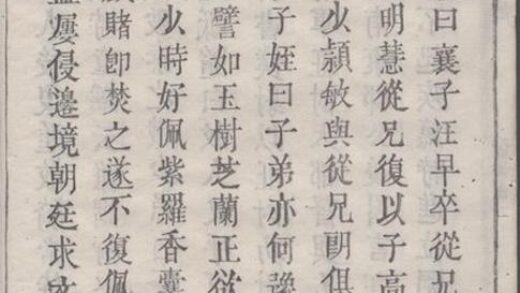 曰襄子汪早卒從兄
明慧從兄復以子高
少穎敏與從兄朗俱
子姪曰子弟亦何豫
譬如玉樹芝蘭正欲
少時好佩紫羅香囊
賭卽焚之遂不復佩
屢侵邊境朝廷求